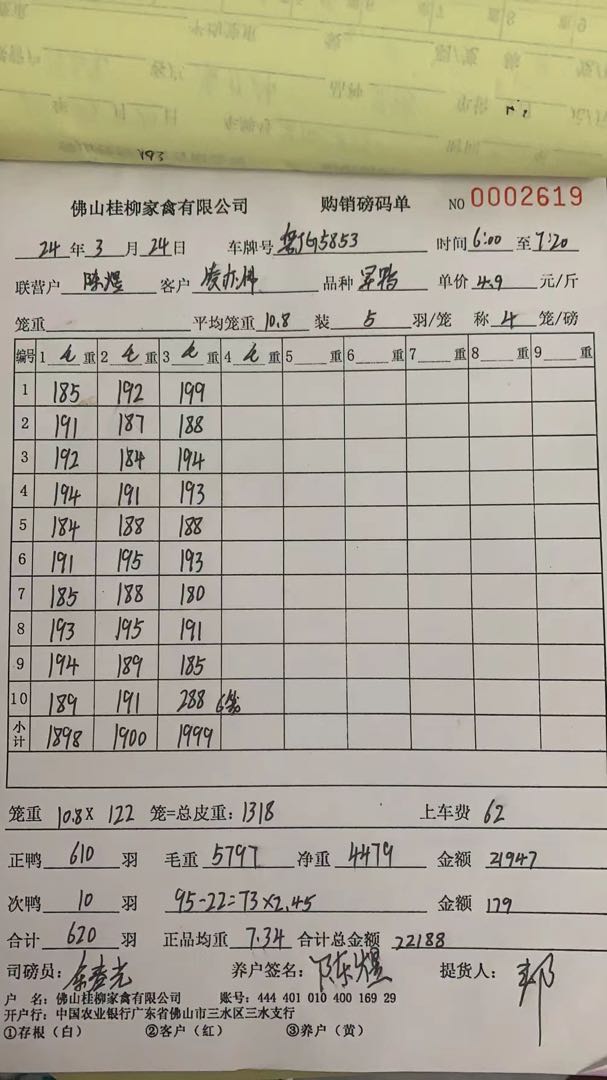 193
佛山桂柳家禽有限公司 购销磅码单 NO 0002619
24 年 3 月 24 日 车牌号 5853 时间 6:00 至 7:20
联营户 陈煜 客户 品种 单价 4.9 元/斤
笼重 平均笼重 10.8 装 5 羽/笼 称 4 笼/磅
编号 1 毛 重 2 毛 重 3 毛 重 4 毛 重 5 重 6 重 7 重 8 重 9 重
1 185 192 199
2 191 187 188
3 192 184 194
4 194 191 193
5 184 188 188
6 191 195 193
7 185 188 180
8 193 195 191
9 194 189 185
10 189 191 288 6笼
小计 1898 1900 1999
笼重 10.8 X 122 笼=总皮重: 1318 上车费 62
正鸭 610 羽 毛重 5797 净重 4479 金额 21947
次鸭 10 羽 95-22=73×2.45 金额 179
合计 620 羽 正品均重 7.34 合计总金额 22188
司磅员: 养户签名: 陈煜 提货人: 邦
户 名: 佛山桂柳家禽有限公司 账号: 444 401 010 400 169 29
开户行: 中国农业银行广东省佛山市三水区三水支行
①存根（白） ②客户（红） ③养户（黄）